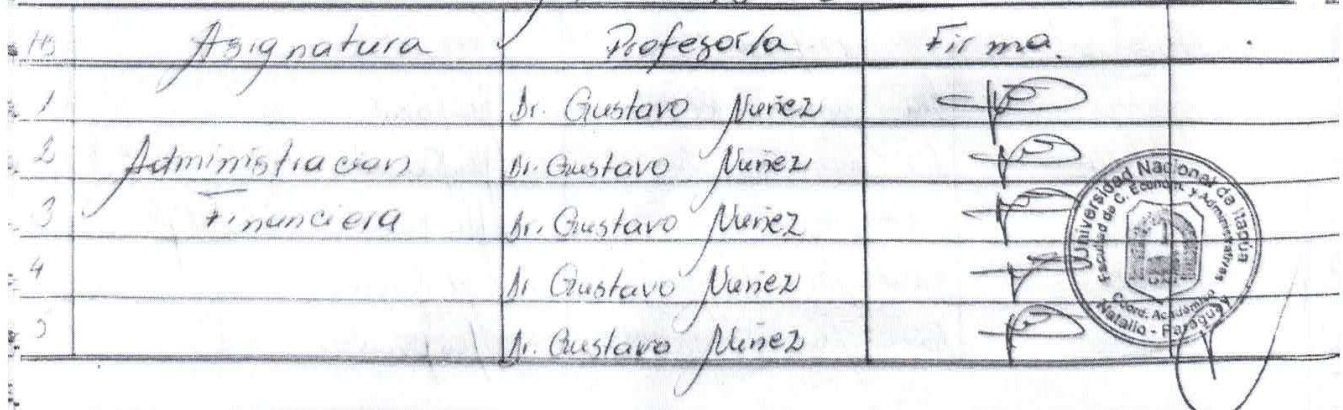 Hs Asignatura Profesor/a Firma.
1 Dr. Gustavo Nuñez
2 Administracion Dr. Gustavo Nuñez
3 Financiera Dr. Gustavo Nuñez
4 Dr. Gustavo Nuñez
5 Dr. Gustavo Nuñez
Universidad Nacional de Itapúa
Facultad de C. Econom. y Administrativas
Coord. Académico
Natalio - Paraguay